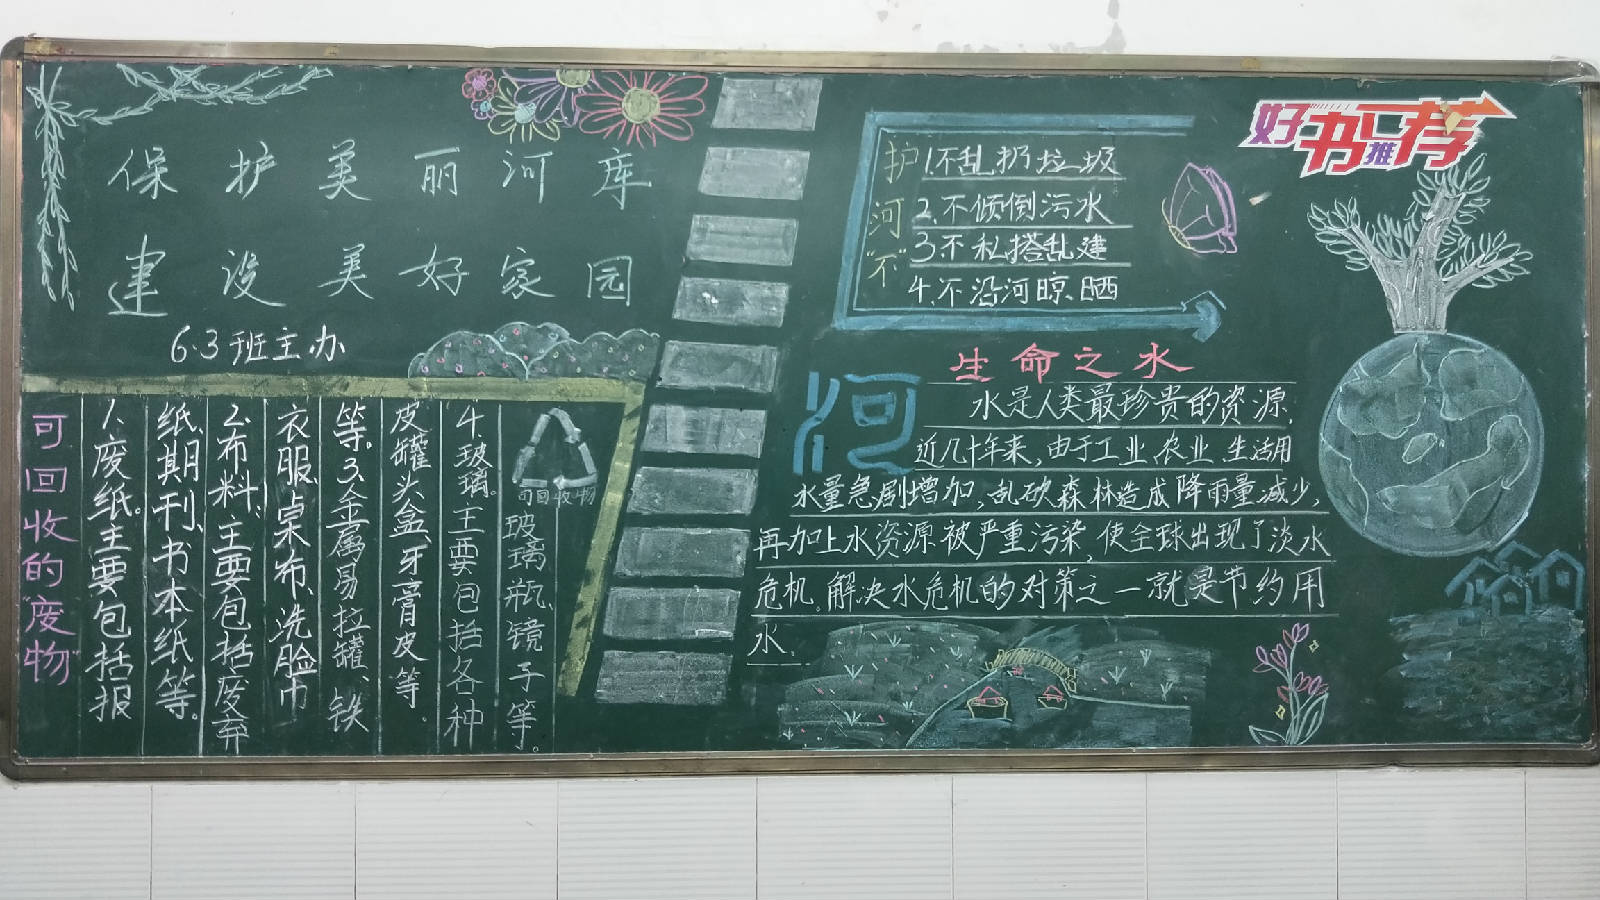 保护美丽河库
建设美好家园
6.3班主办
可回收的"废物"
1、废纸。主要包括报
纸、期刊、书本纸等。
2、布料、主要包括废弃
衣服、桌布、洗脸巾
等。3、金属易拉罐、铁
皮罐头盒、牙膏皮等.
4.玻璃。主要包括各种
玻璃瓶、镜子等。
可回收物
护河"不"
1.不乱扔垃圾
2.不倾倒污水
3.不私搭乱建
4.不沿河晾晒
好书推荐
生命之水
河
水是人类最珍贵的资源.
近几十年来,由于工业、农业、生活用
水量急剧增加,乱砍森林造成降雨量减少,
再加上水资源被严重污染,使全球出现了淡水
危机。解决水危机的对策之一就是节约用
水.